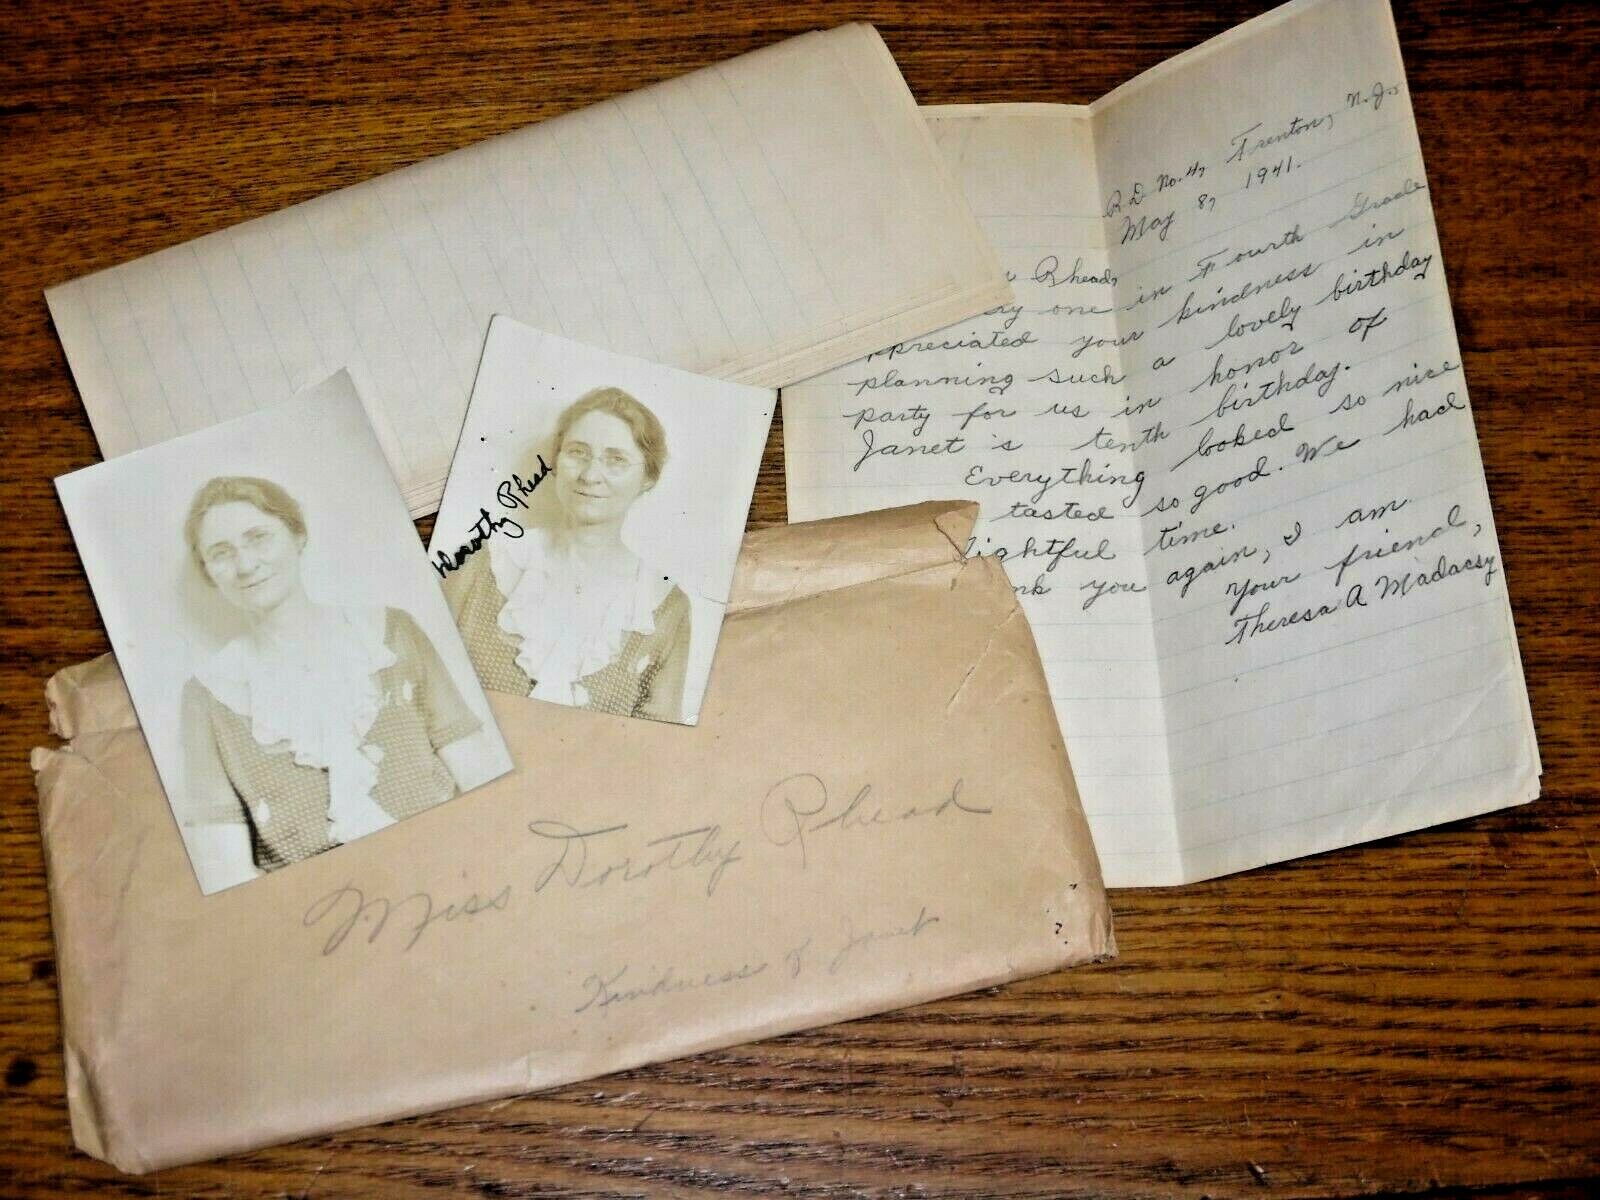 R.D. No. 4, Trenton, N.J.
May 8, 1941.
Rhead,
one in Fourth Grade
appreciated your kindness in
planning such a lovely birthday
party for us in honor of
Janet's tenth birthday.
Everything looked so nice
tasted so good. We had
time.
you again, I am
Your friend,
Theresa A Madacsy
Dorothy Rhead
Miss Dorothy Rhead
Kindness of Janet